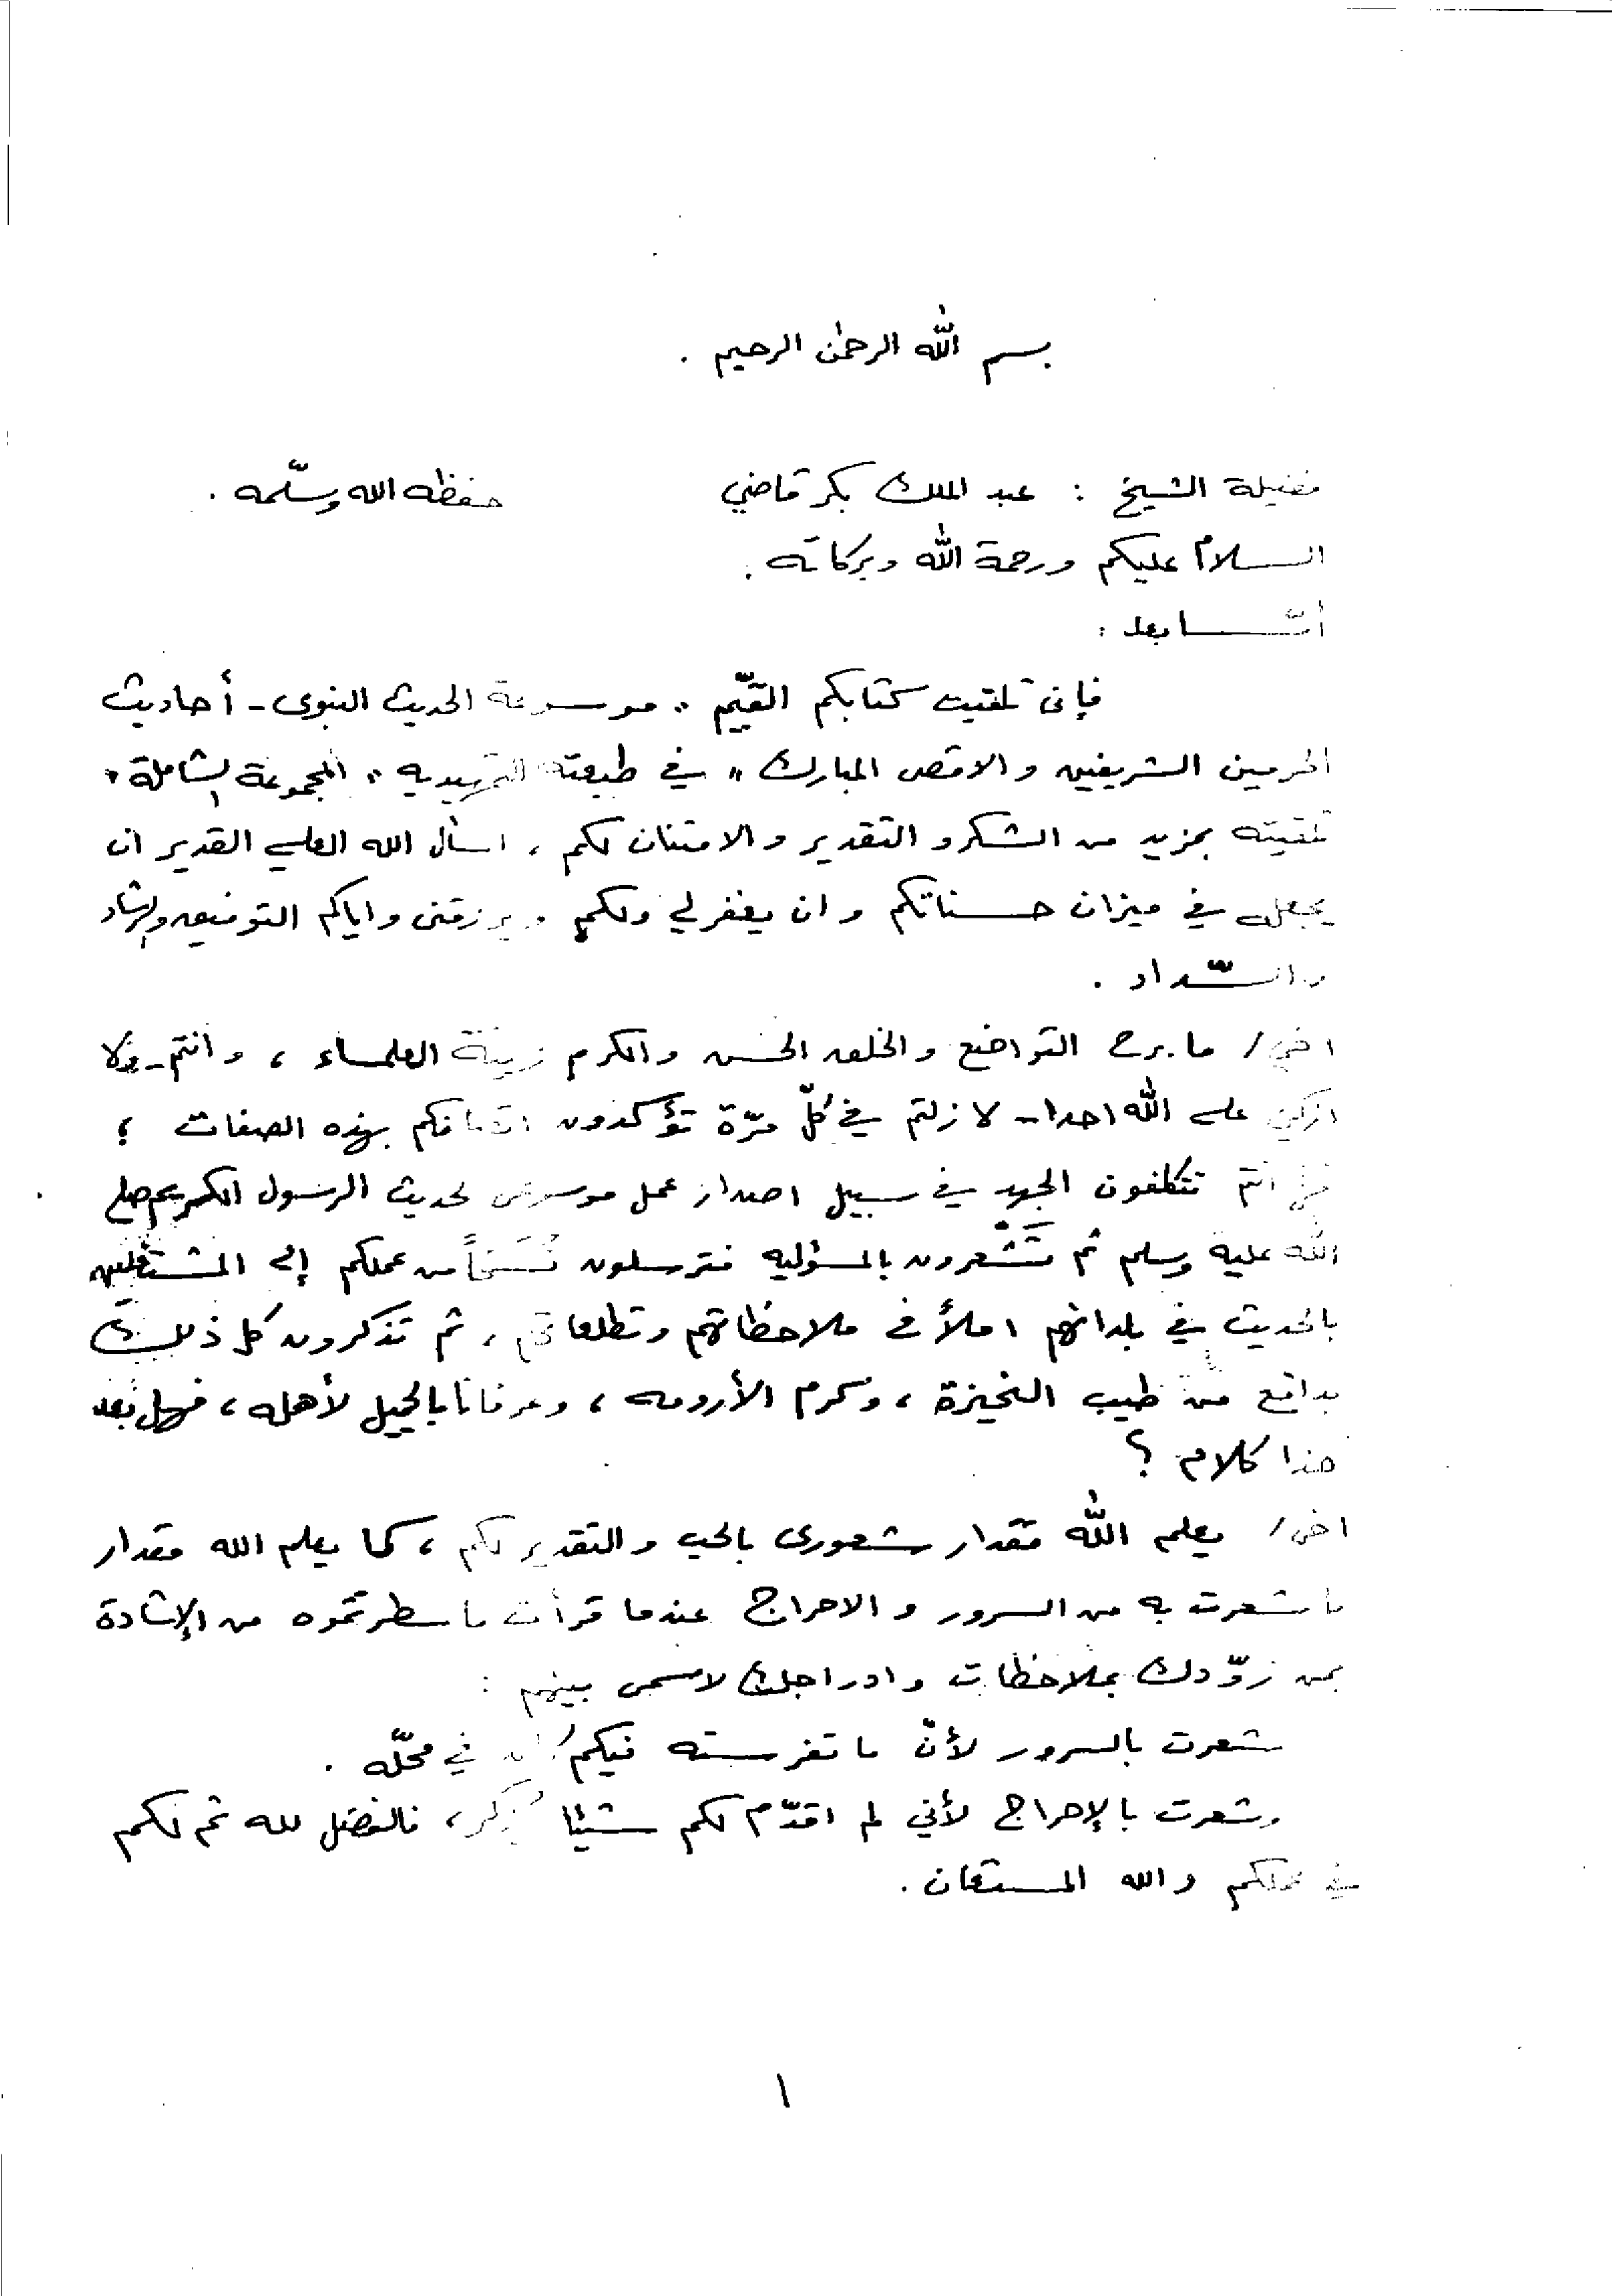 بسم الله الرحمن الرحيم .
فضيلة الشيخ : عبد الملك بكر قاضي حفظه الله وسلّمه .
السلام عليكم ورحمة الله وبركاته .
أمّا بعد :
فإنى تلقيت كتابكم القيّم " موسوعة الحديث النبوى - أحاديث
الحرمين الشريفين والاقصى المبارك " في طبعته التمهيديه " المجموعة الشاملة "
تلقيته بمزيد من الشكر والتقدير والامتنان لكم ، اسأل الله العلي القدير ان
يجعله في ميزان حسناتكم وان يغفر لي ولكم ويرزقنى واياكم التوفيق والرشاد
والسّداد .
اخي / ما برح التواضع والخلق الحسن والكرم زينة العلماء ، وانتم - ولا
ازكي على الله احدا - لا زلتم في كلّ مرّة تؤكدون اتصافكم بهذه الصفات ؛
انتم تتكلفون الجهد في سبيل اصدار عمل موسوعى لحديث الرسول الكريم صلى
الله عليه وسلم ثم تَشْعرون بالمسؤليه فترسلون نُسَخاً من عملكم إلى المشتغلين
بالحديث في بلدانهم املاً في ملاحظاتهم وتطلعاتهم ، ثم تذكرون كل ذلك
بدافع من طيب النحيزة ، وكرم الأرومه ، وعرفانا بالجميل لأهله ، فهل بَعْد
هذا كلام ؟
اخى / يعلم الله مقدار شعورى بالحب والتقدير لكم ، كما يعلم الله مقدار
ما شعرت به من السرور والاحراج عندما قرأت ما سطرتموه من الإشادة
بمن زوّدك بملاحظات وادراجك لاسمى بينهم :
شعرت بالسرور لأنّ ما تفرسته فيكم كان في محلّه .
وشعرت بالإحراج لأني لم اقدّم لكم شيئا يُذكر ، فالفضل لله ثم لكم
في عملكم والله المستعان .
١